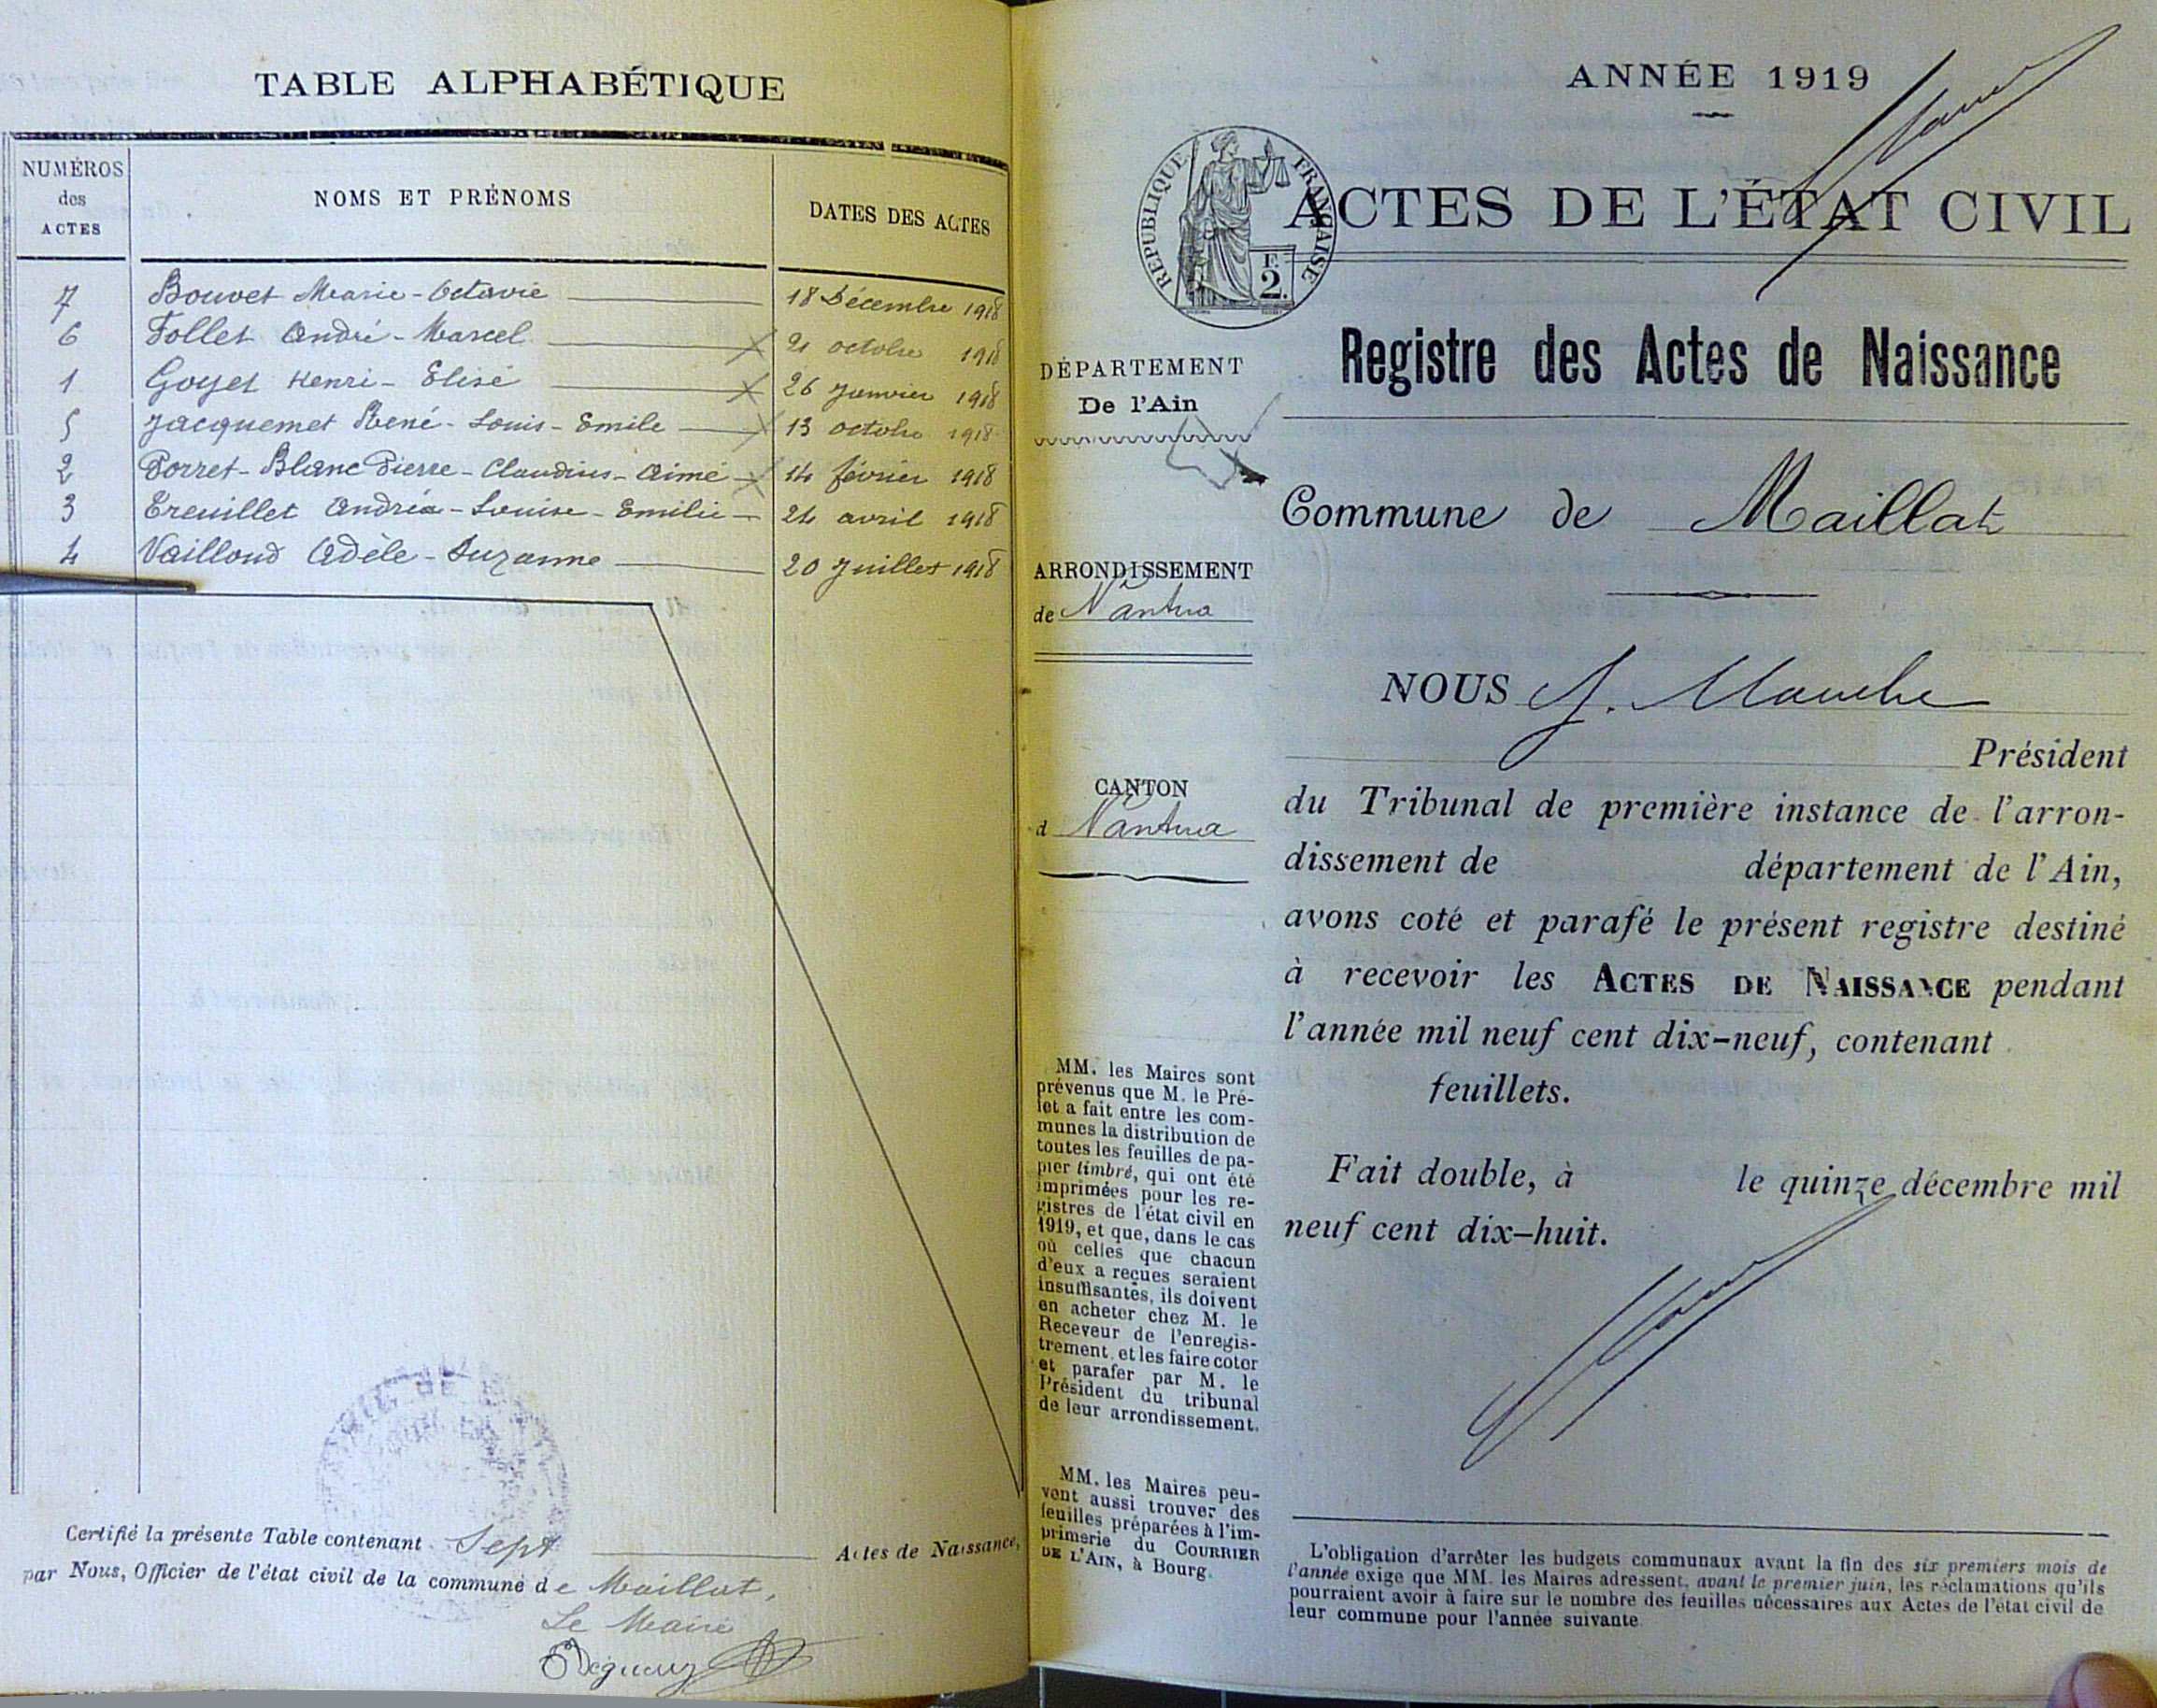 TABLE ALPHABÉTIQUE
NUMÉROS des ACTES
NOMS ET PRÉNOMS
DATES DES ACTES
7 Bouvet Marie-Octavie 18 Décembre 1918
6 Follet André-Marcel 21 octobre 1918
1 Goyet Henri-Elisé 26 Janvier 1918
5 Jacquemet René-Louis-Emile 13 octobre 1918
2 Porret-Blanc Pierre-Claudius-Aimé 14 février 1918
3 Treuillet Andréa-Louise-Emilie 24 avril 1918
4 Vailloud Adèle-Suzanne 20 Juillet 1918
Certifié la présente Table contenant Sept Actes de Naissance,
par Nous, Officier de l'état civil de la commune de Maillat,
Le Maire
ANNÉE 1919
RÉPUBLIQUE FRANÇAISE
F. 2.
ACTES DE L'ÉTAT CIVIL
Registre des Actes de Naissance
DÉPARTEMENT
De l'Ain
Commune de Maillat
ARRONDISSEMENT
de Nantua
NOUS J.
Président
CANTON
d Nantua
du Tribunal de première instance de l'arron-
dissement de département de l'Ain,
avons coté et parafé le présent registre destiné
à recevoir les ACTES DE NAISSANCE pendant
l'année mil neuf cent dix-neuf, contenant
feuillets.
Fait double, à le quinze décembre mil
neuf cent dix-huit.
MM. les Maires sont
prévenus que M. le Pré-
fet a fait entre les com-
munes la distribution de
toutes les feuilles de pa-
pier timbré, qui ont été
imprimées pour les re-
gistres de l'état civil en
1919, et que, dans le cas
où celles que chacun
d'eux a reçues seraient
insuffisantes, ils doivent
en acheter chez M. le
Receveur de l'enregis-
trement, et les faire coter
et parafer par M. le
Président du tribunal
de leur arrondissement.
MM. les Maires peu-
vent aussi trouver des
feuilles préparées à l'im-
primerie du COURRIER
DE L'AIN, à Bourg.
L'obligation d'arrêter les budgets communaux avant la fin des six premiers mois de
l'année exige que MM. les Maires adressent, avant le premier juin, les réclamations qu'ils
pourraient avoir à faire sur le nombre des feuilles nécessaires aux Actes de l'état civil de
leur commune pour l'année suivante.